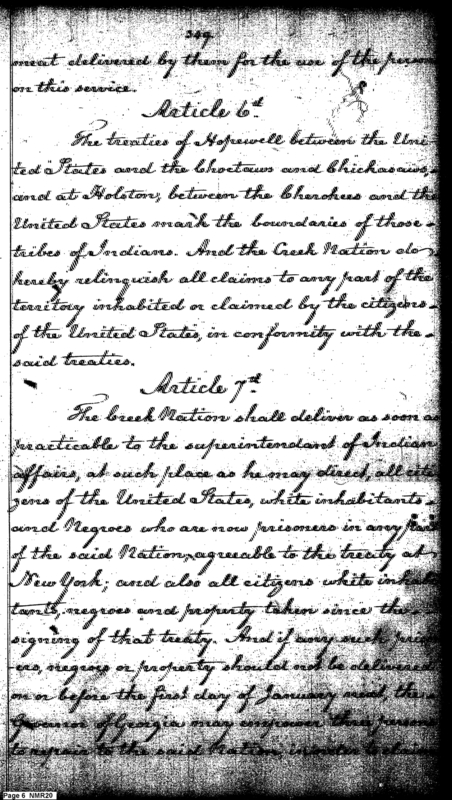 349
meat delivered by them for the use of the person
on this service.
Article 6th
The treaties of Hopewell between the Uni
ted States and the Choctaws and Chickasaws,
and at Holston, between the Cherokees and the
United States mark the boundaries of those
tribes of Indians. And the Creek Nation do
hereby relinquish all claims to any part of the
territory inhabited or claimed by the citizens
of the United States, in conformity with the
said treaties.
Article 7th
The Creek Nation shall deliver as soon as
practicable to the superintendant of Indian
affairs, at such place as he may direct, all citi
zens of the United States, white inhabitants
and Negroes who are now prisoners in any part
of the said Nation, agreeable to the treaty at
New York; and also all citizens white inhabi
tants, negroes and property taken since the
signing of that treaty. And if any such prison
ers, negroes or property should not be delivered
on or before the first day of January next, the
Governor of Georgia may empower three persons
to repair to the said Nation, in order to claim
Page 6 NMR20